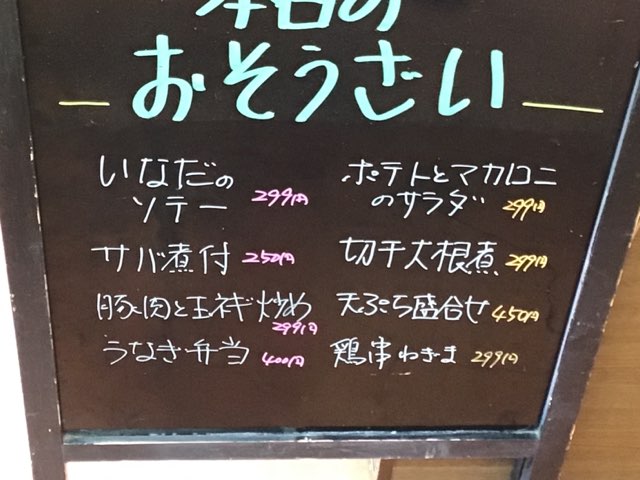 本日の
おそうざい
いなだの
ソテー 299円
サバ煮付 250円
豚肉と玉ネギ炒め
299円
うなぎ弁当 400円
ポテトとマカロニ
のサラダ 299円
切干大根煮 299円
天ぷら盛合せ 450円
鶏串ねぎま 299円